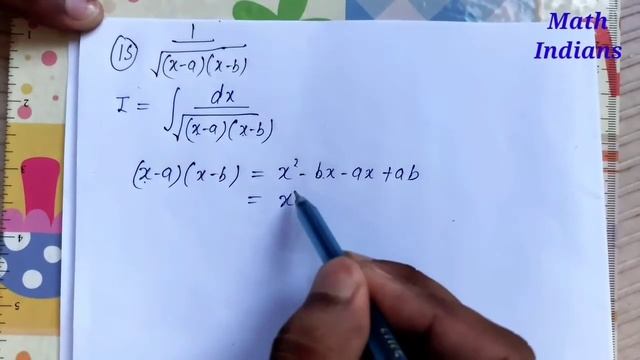 Math
Indians
(15) 1/√((x-a)(x-b))
I = ∫ dx/√((x-a)(x-b))
(x-a)(x-b) = x² - bx - ax + ab
= x